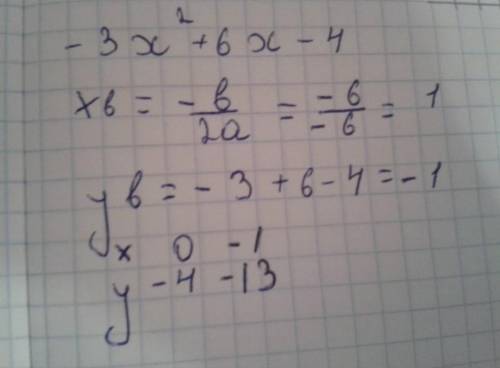 -3x²+6x-4
xв = -в/2a = -6/-6 = 1
yв = -3+6-4=-1
x 0 -1
y -4 -13